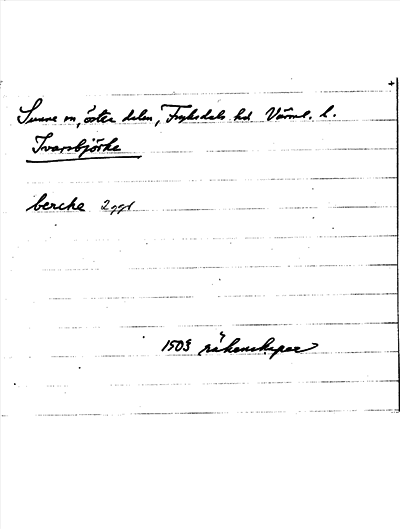 Sunne sn, östra delen, Fryksdals hd Värml. l.
Ivarsbjörke
bercke 2 ggr
1503 räkenskaper